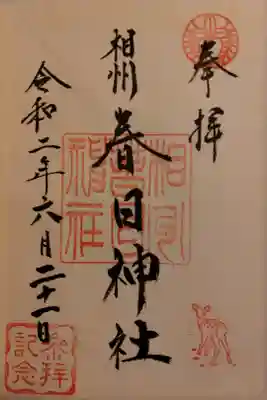 奉拝
相州
春日神社
令和二年六月二十一日
相州
春日
神社
参拝
記念